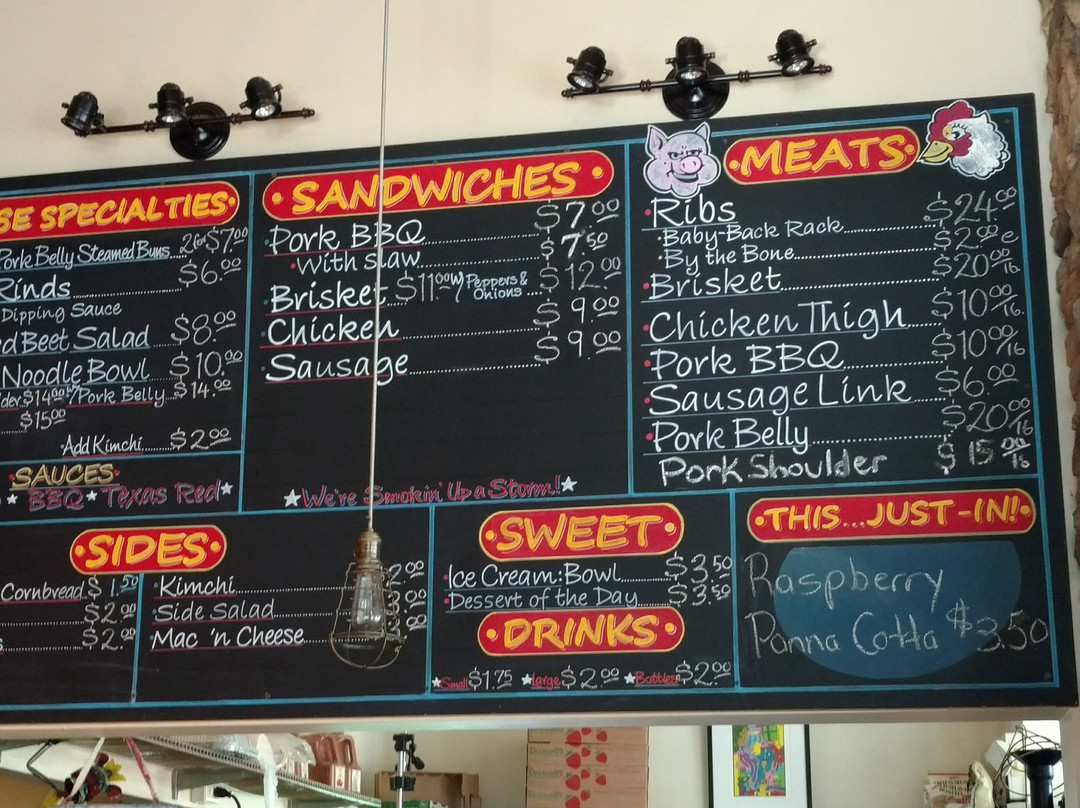 SE SPECIALTIES
Pork Belly Steamed Buns 2 for $7.00
Rinds $6.00
Dipping Sauce
d Beet Salad $8.00
Noodle Bowl $10.00
der $14.00 w/ Pork Belly $14.00
$15.00
Add Kimchi $2.00
SAUCES
BBQ Texas Red
SANDWICHES
Pork BBQ $7.00
With slaw $7.50
Brisket $11.00 w/ Peppers & Onions $12.00
Chicken $9.00
Sausage $9.00
We're Smokin' Up a Storm!
MEATS
Ribs
Baby-Back Rack $24.00
By the Bone $2.00 e
Brisket $20.00 lb.
Chicken Thigh $10.00/lb.
Pork BBQ $10.00/lb
Sausage Link $6.00
Pork Belly $20.00/lb
Pork Shoulder $15.00/lb
SIDES
Cornbread $1.50
$2.00
s $2.00
Kimchi 2.00
Side Salad
Mac 'n Cheese
SWEET
Ice Cream: Bowl $3.50
Dessert of the Day $3.50
DRINKS
Small $1.75 large $2.00 Bottles $2.00
THIS...JUST-IN!
Raspberry
Panna Cotta $3.50